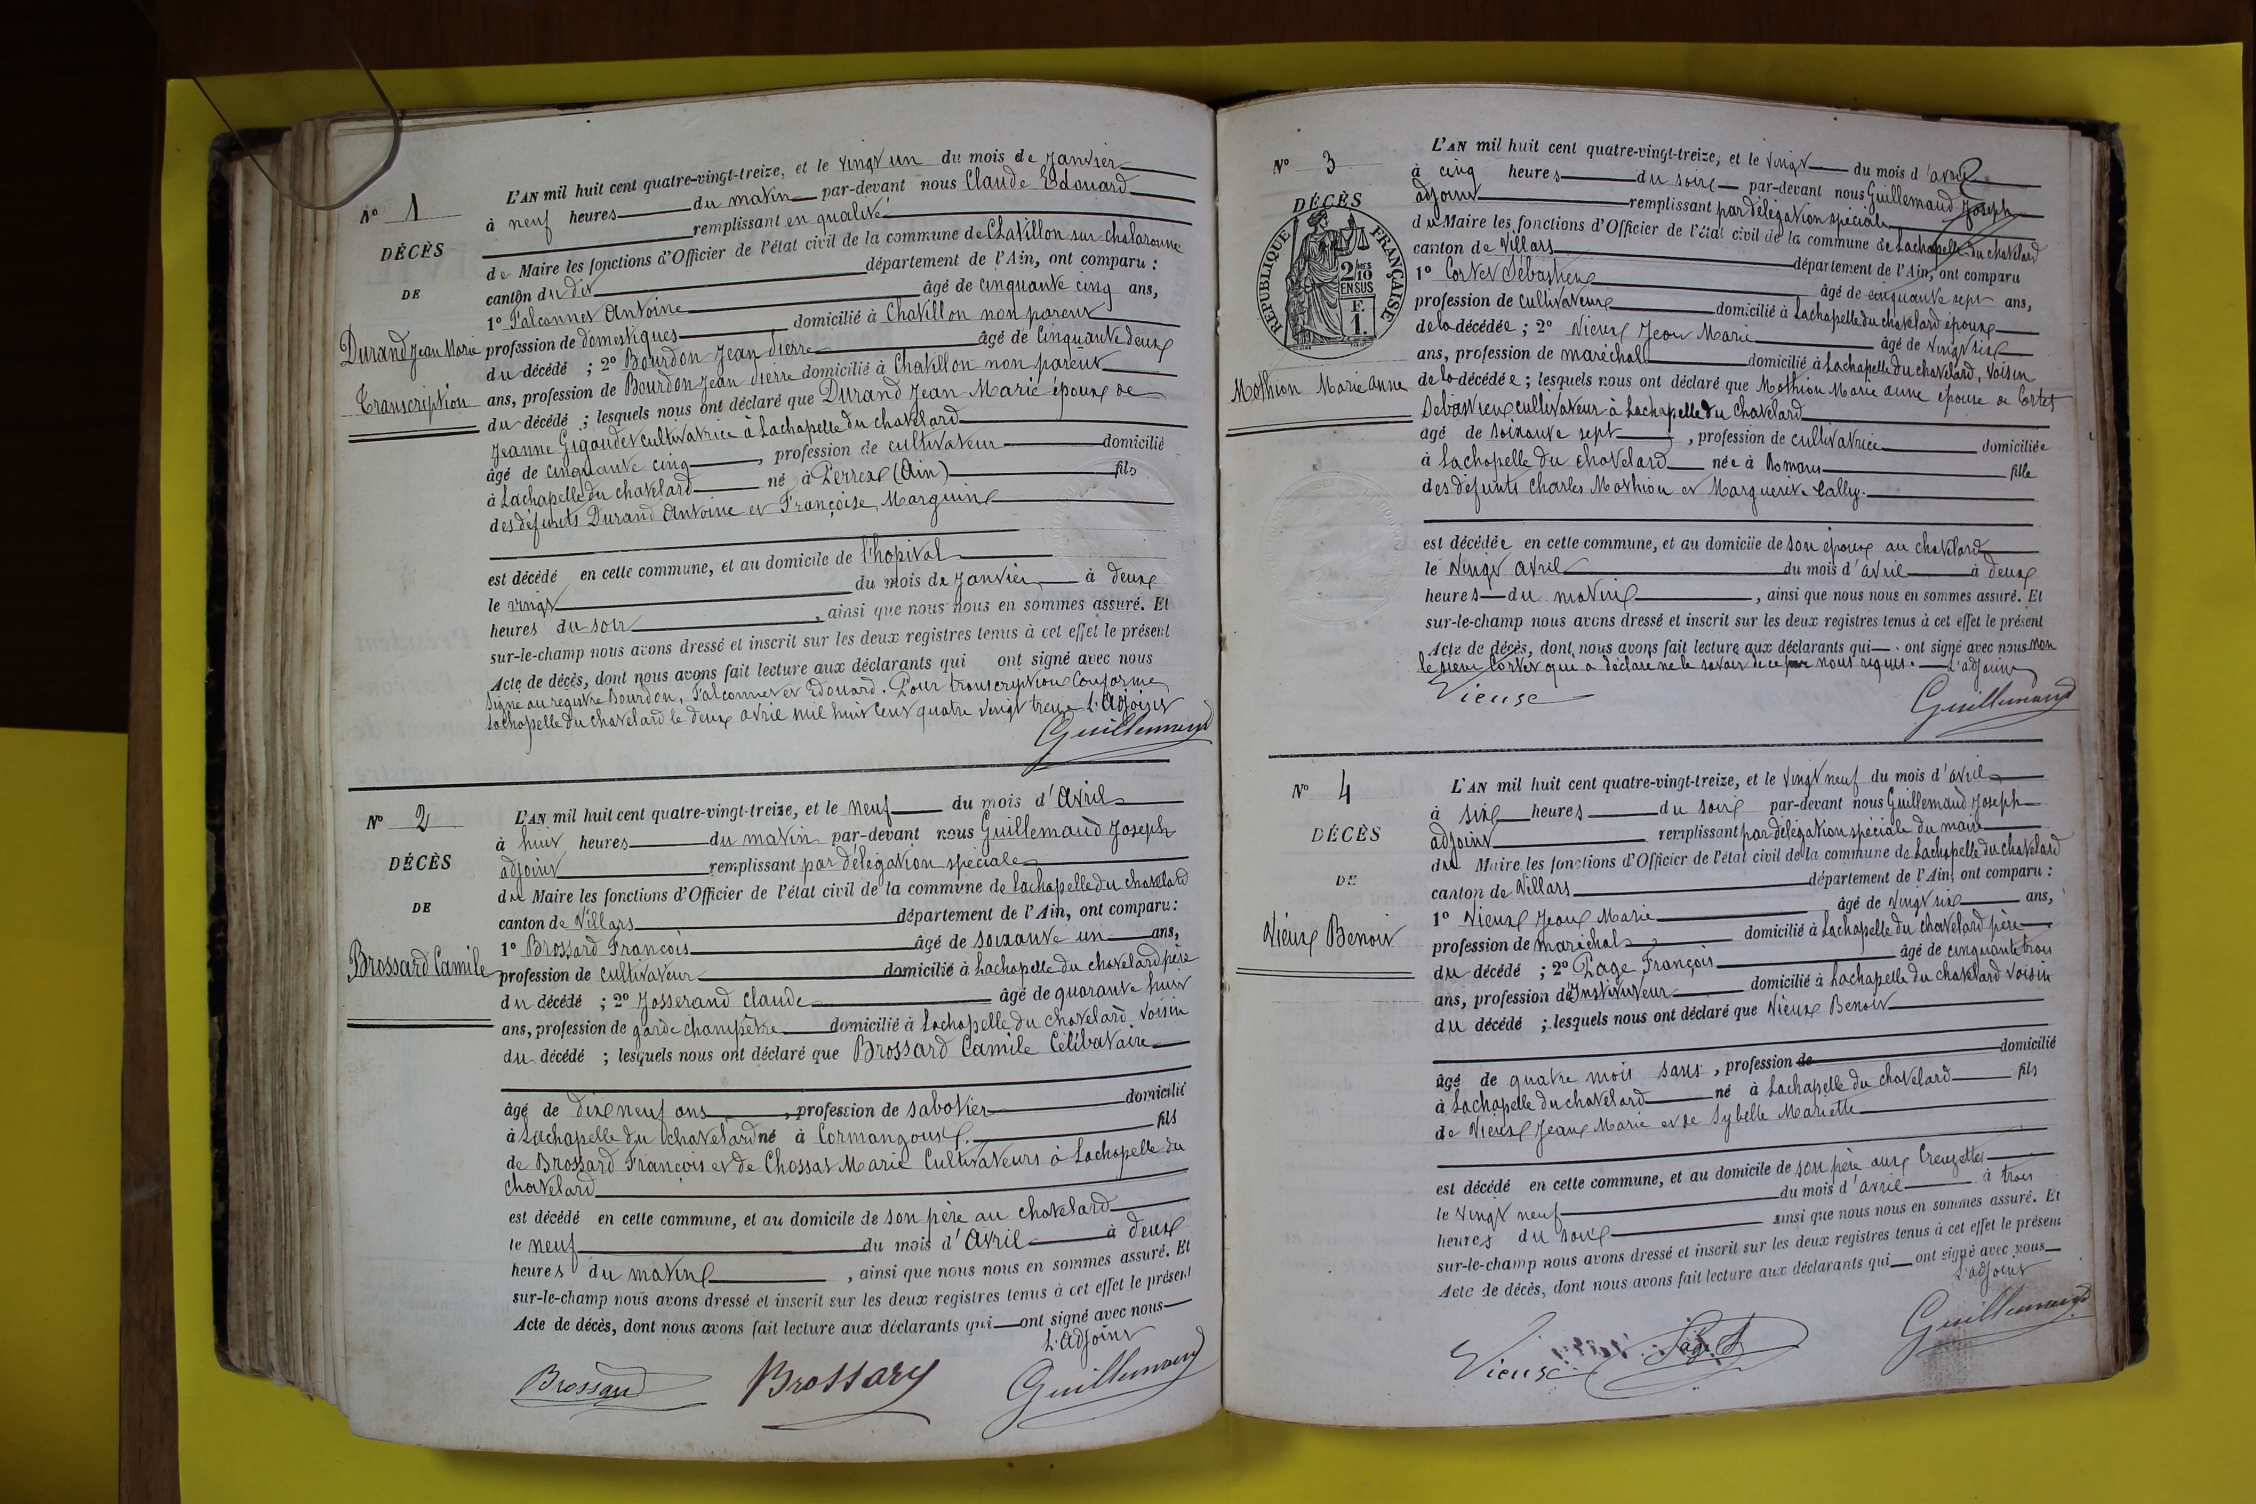 N° 1
DÉCÈS
DE
Durand Jean Marie
Transcription
L'AN mil huit cent quatre-vingt-treize, et le vingt un du mois de Janvier
à neuf heures du matin par-devant nous Claude Edouard
remplissant en qualité
de Maire les fonctions d'Officier de l'état civil de la commune de Chatillon sur chalaronne
canton du dit département de l'Ain, ont comparu :
1° Falconnet Antoine âgé de cinquante cinq ans,
profession de domestiques domicilié à Chatillon non parent
du décédé ; 2° Bourdon Jean Pierre âgé de Cinquante deux
ans, profession de Bourdon Jean Pierre domicilié à Chatillon non parent
du décédé ; lesquels nous ont déclaré que Durand Jean Marie époux de
Jeanne Gigaudet cultivatrice à Lachapelle du chatelard
âgé de cinquante cinq , profession de cultivateur domicilié
à Lachapelle du chatelard né à Perrex (Ain) fils
des défunts Durand Antoine et Françoise Marguin
est décédé en cette commune, et au domicile de l'hopital
le vingt du mois de Janvier à deux
heures du soir , ainsi que nous nous en sommes assuré. Et
sur-le-champ nous avons dressé et inscrit sur les deux registres tenus à cet effet le présent
Acte de décès, dont nous avons fait lecture aux déclarants qui ont signé avec nous
Signé au registre Bourdon, Falconnet et Edouard. Pour transcription Conforme
Lachapelle du chatelard le deux avril mil huit cent quatre vingt treize L'Adjoint
Guillemaud
N° 2
DÉCÈS
DE
Brossard Camile
L'AN mil huit cent quatre-vingt-treize, et le neuf du mois d'Avril
à huit heures du matin par-devant nous Guillemaud Joseph
adjoint remplissant par délégation spéciale
du Maire les fonctions d'Officier de l'état civil de la commune de Lachapelle du chatelard
canton de Villars département de l'Ain, ont comparu :
1° Brossard François âgé de soixante un ans,
profession de cultivateur domicilié à Lachapelle du chatelard père
du décédé ; 2° Josserand Claude âgé de quarante huit
ans, profession de garde champêtre domicilié à Lachapelle du chatelard, voisin
du décédé ; lesquels nous ont déclaré que Brossard Camile Célibataire
âgé de dix neuf ans , profession de sabotier domicilié
à Lachapelle du chatelard né à Cormangoux. fils
de Brossard François et de Chossat Marie Cultivateurs à Lachapelle du
chatelard
est décédé en cette commune, et au domicile de son père au chatelard
le neuf du mois d'Avril à deux
heures du matin , ainsi que nous nous en sommes assuré. Et
sur-le-champ nous avons dressé et inscrit sur les deux registres tenus à cet effet le présent
Acte de décès, dont nous avons fait lecture aux déclarants qui ont signé avec nous
L'Adjoint
Brossard Brossard Guillemaud
N° 3
DÉCÈS
RÉPUBLIQUE FRANÇAISE
2/10 EN SUS
F. 1.
Mothion Marie Anne
L'AN mil huit cent quatre-vingt-treize, et le vingt du mois d'avril
à cinq heures du soir par-devant nous Guillemaud Joseph
adjoint remplissant par délégation spéciale
du Maire les fonctions d'Officier de l'état civil de la commune de Lachapelle du chatelard
canton de Villars département de l'Ain, ont comparu
1° Cortet Sébastien âgé de cinquante sept ans,
profession de cultivateur domicilié à Lachapelle du chatelard époux
de la décédée ; 2° Vieux Jean Marie âgé de vingt six
ans, profession de maréchal domicilié à Lachapelle du chatelard, voisin
de la décédée ; lesquels nous ont déclaré que Mothion Marie anne épouse de Cortet
Sébastien cultivateur à Lachapelle du chatelard
agé de soixante sept , profession de cultivatrice domiciliée
à Lachapelle du chatelard née à Romans fille
des défunts Charles Mothion et Marguerite Cally.
est décédée en cette commune, et au domicile de son époux au chatelard
le vingt avril du mois d'avril à deux
heures du matin , ainsi que nous nous en sommes assuré. Et
sur-le-champ nous avons dressé et inscrit sur les deux registres tenus à cet effet le présent
Acte de décès, dont nous avons fait lecture aux déclarants qui ont signé avec nous non
le sieur Cortet qui a déclaré ne le savoir de ce nous requis. L'adjoint
Vieux Guillemaud
N° 4
DÉCÈS
DE
Vieux Benoit
L'AN mil huit cent quatre-vingt-treize, et le vingt neuf du mois d'avril
à six heures du soir par-devant nous Guillemaud Joseph
adjoint remplissant par délégation spéciale du maire
du Maire les fonctions d'Officier de l'état civil de la commune de Lachapelle du chatelard
canton de Villars département de l'Ain, ont comparu :
1° Vieux Jean Marie âgé de vingt six ans,
profession de maréchal domicilié à Lachapelle du chatelard père
du décédé ; 2° Page François âgé de cinquante trois
ans, profession d'Instituteur domicilié à Lachapelle du chatelard voisin
du décédé ; lesquels nous ont déclaré que Vieux Benoit
âgé de quatre mois sans , profession de domicilié
à Lachapelle du chatelard né à Lachapelle du chatelard fils
de Vieux Jean Marie et de Sybelle Mariette
est décédé en cette commune, et au domicile de son père aux Creuzettes
le vingt neuf du mois d'avril à trois
heures du soir ainsi que nous nous en sommes assuré. Et
sur-le-champ nous avons dressé et inscrit sur les deux registres tenus à cet effet le présent
Acte de décès, dont nous avons fait lecture aux déclarants qui ont signé avec nous
L'adjoint
Vieux Page Guillemaud